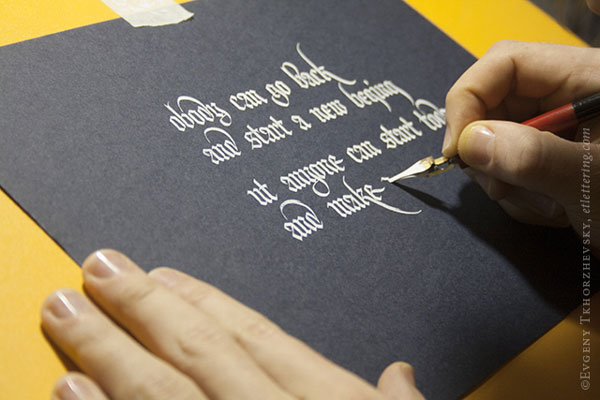 obody can go back
and start a new beging
ut anyone can start tod
and make
©Evgeny Tkhorzhevsky, etlettering.com